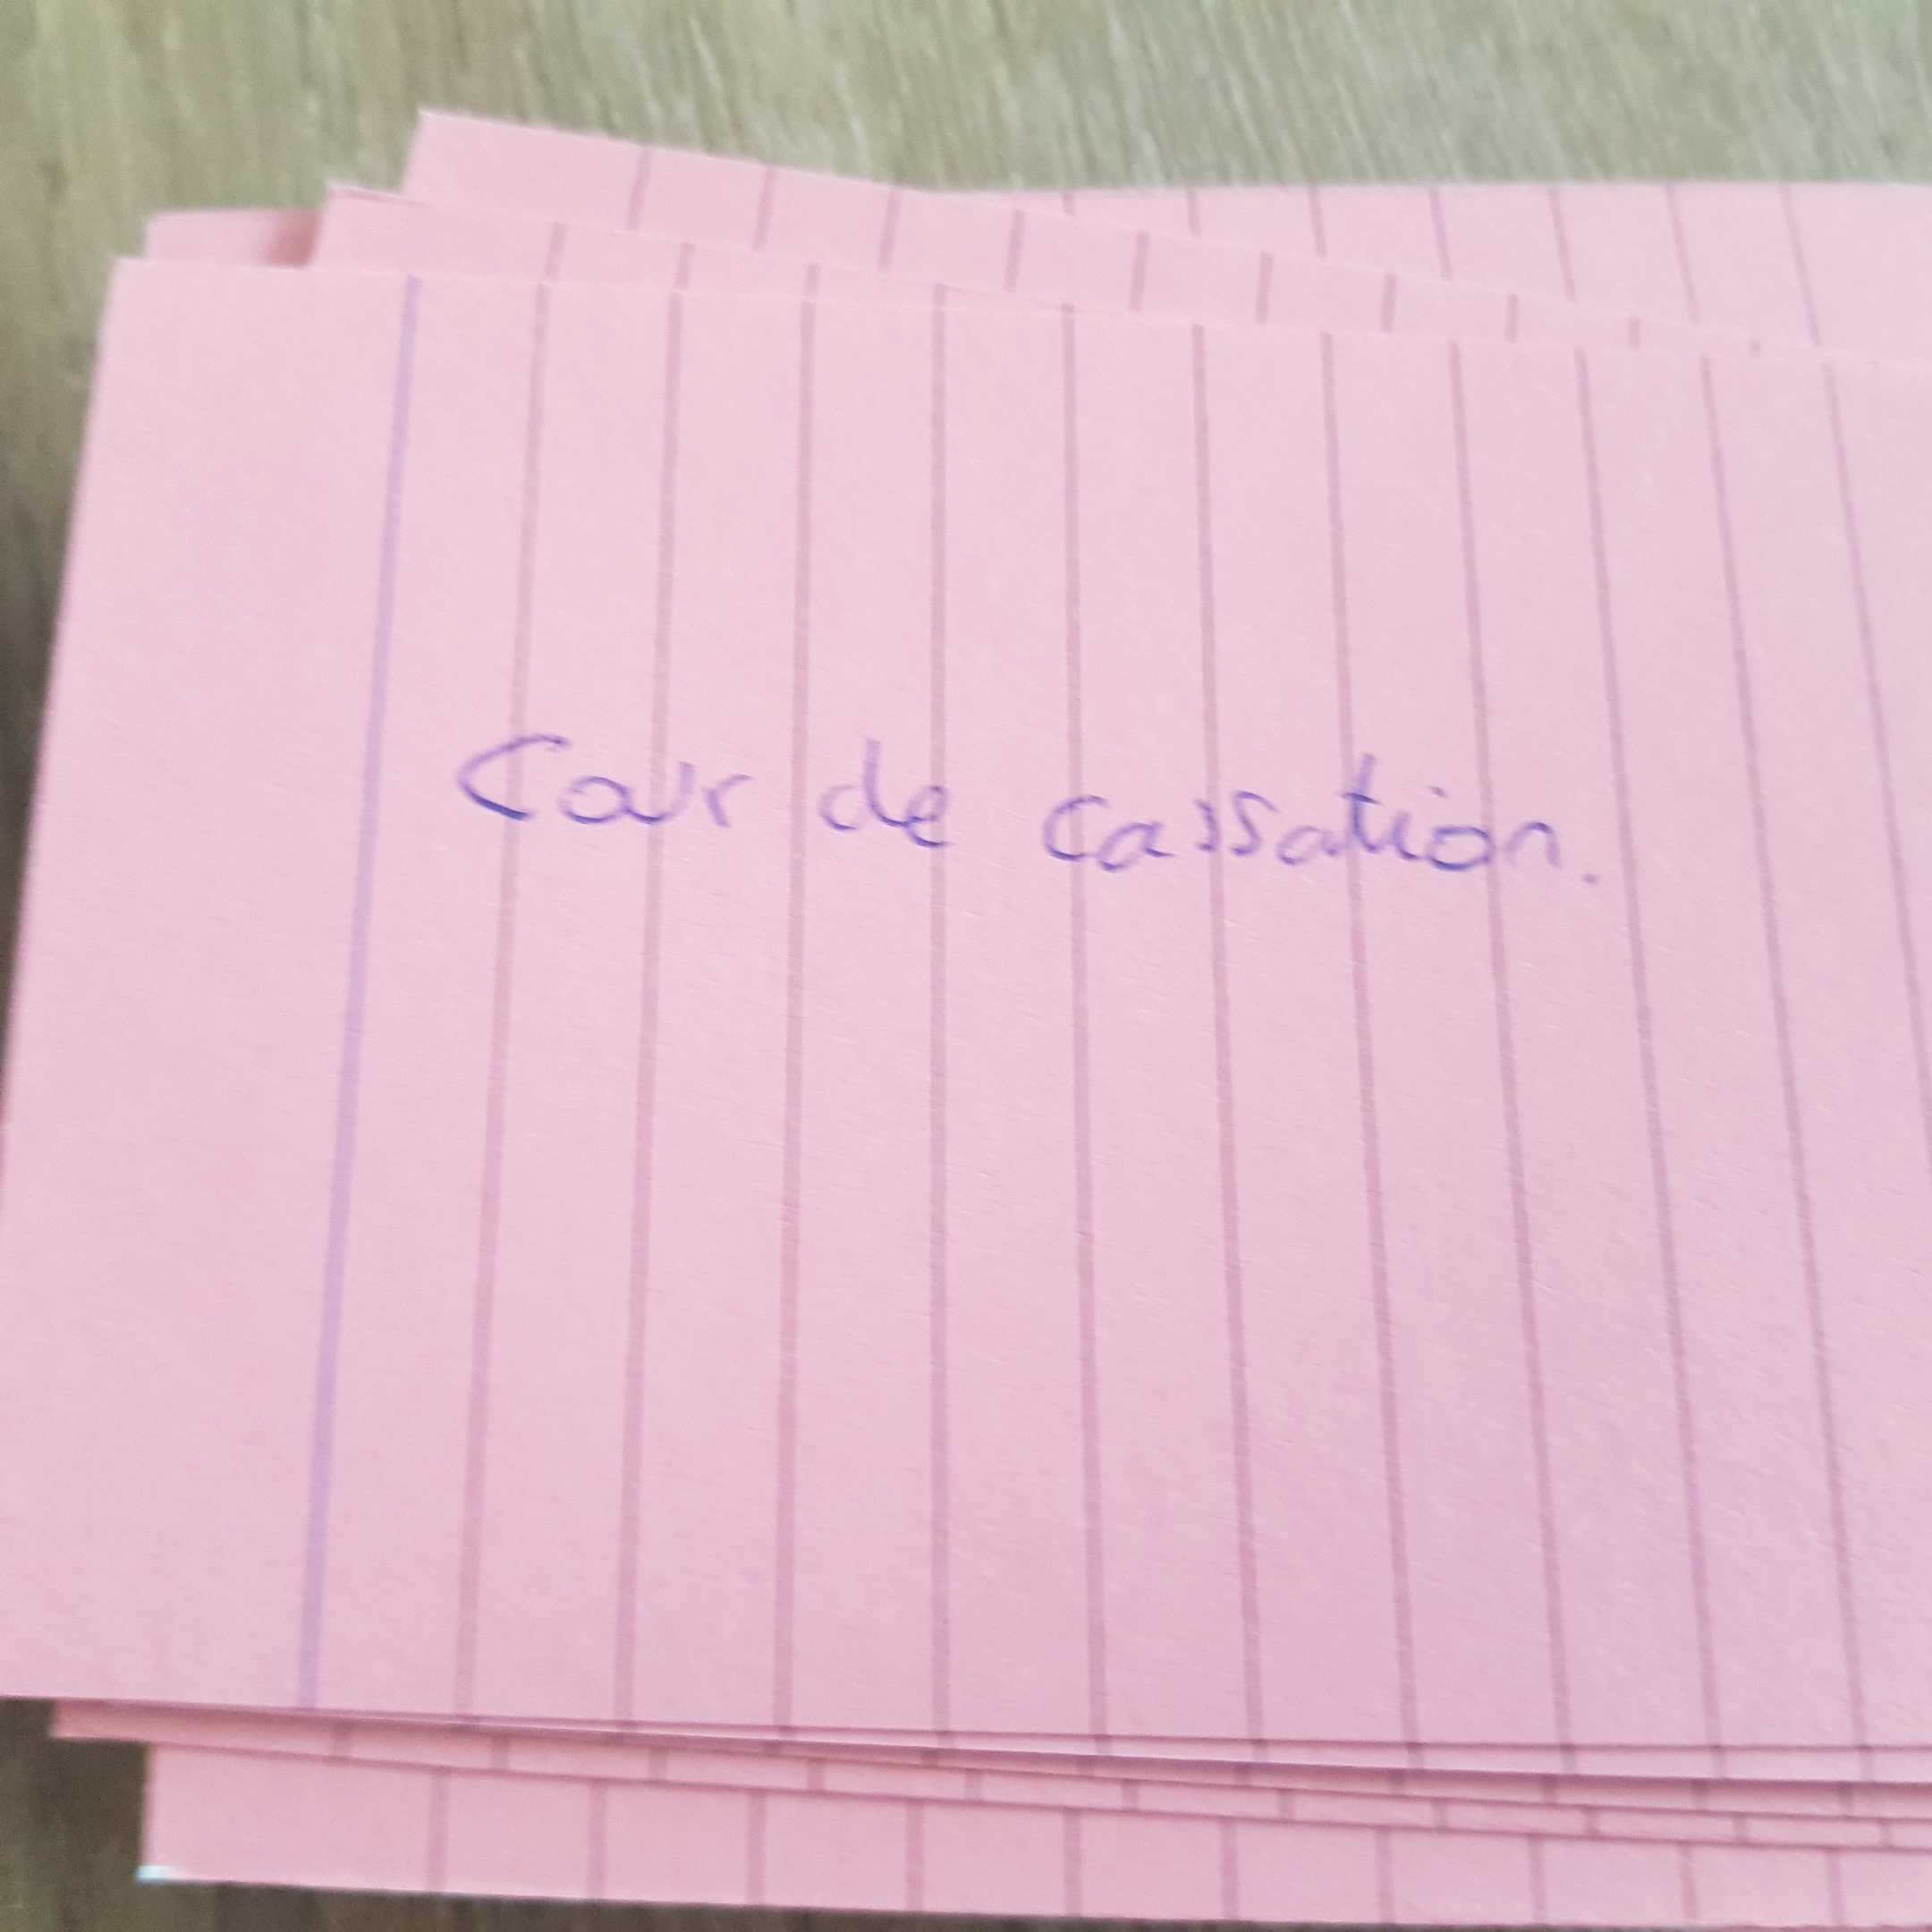 Cour de cassation.